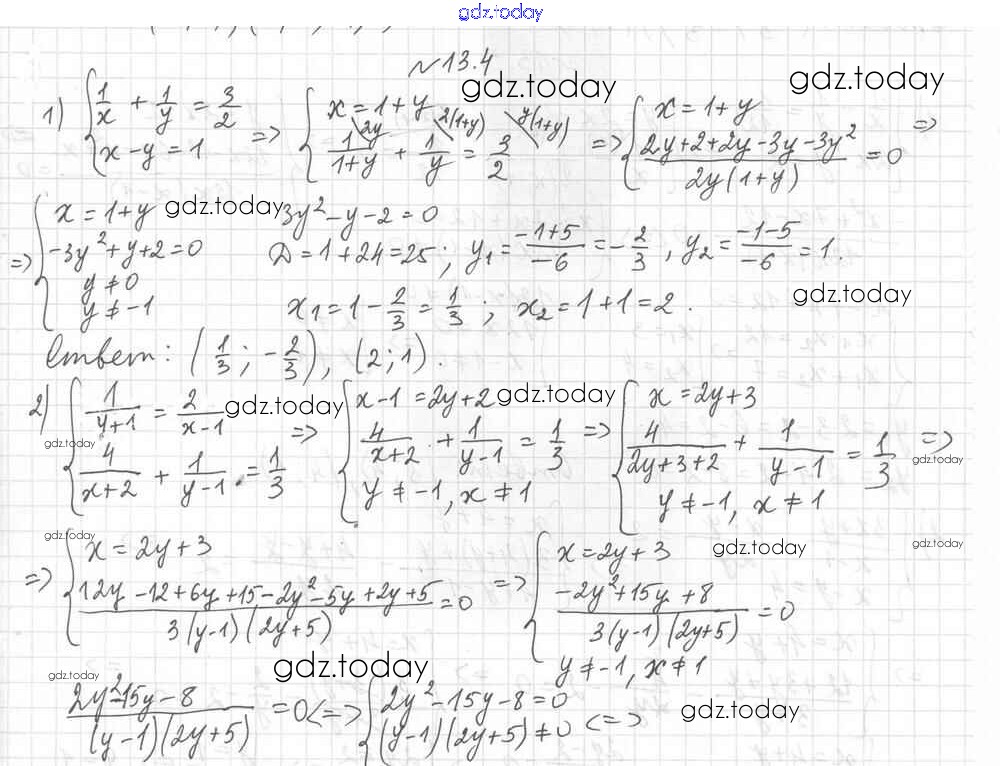 gdz.today
№13.4
gdz.today gdz.today
1) { 1/x + 1/y = 3/2 ; x - y = 1 => { x = 1 + y ; 1/(1+y) + 1/y = 3/2 (2y, 2(1+y), y(1+y)) => { x = 1 + y ; (2y + 2 + 2y - 3y - 3y²)/(2y(1+y)) = 0 =>
=> { x = 1 + y ; -3y² + y + 2 = 0 ; y ≠ 0 ; y ≠ -1
gdz.today
3y² - y - 2 = 0
D = 1 + 24 = 25 ; y₁ = (-1+5)/(-6) = -2/3 , y₂ = (-1-5)/(-6) = 1.
x₁ = 1 - 2/3 = 1/3 ; x₂ = 1 + 1 = 2 .
gdz.today
Ответ: (1/3 ; -2/3), (2; 1).
2) { 1/(y+1) = 2/(x-1) ; 4/(x+2) + 1/(y-1) = 1/3 => { x - 1 = 2y + 2 ; 4/(x+2) + 1/(y-1) = 1/3 ; y ≠ -1, x ≠ 1 => { x = 2y + 3 ; 4/(2y+3+2) + 1/(y-1) = 1/3 ; y ≠ -1, x ≠ 1 =>
gdz.today gdz.today
gdz.today gdz.today
gdz.today gdz.today gdz.today
=> { x = 2y + 3 ; (12y - 12 + 6y + 15 - 2y² - 5y + 2y + 5)/(3(y-1)(2y+5)) = 0 => { x = 2y + 3 ; (-2y² + 15y + 8)/(3(y-1)(2y+5)) = 0 ; y ≠ -1, x ≠ 1
gdz.today gdz.today
(2y² - 15y - 8)/((y-1)(2y+5)) = 0 <=> { 2y² - 15y - 8 = 0 ; (y-1)(2y+5) ≠ 0 <=>
gdz.today